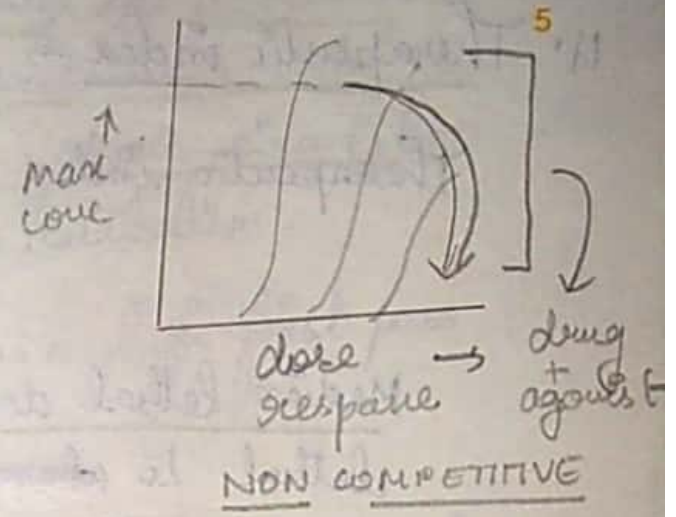 5
↑
Max
conc
dose →
response
drug
+
agonist
NON COMPETITIVE